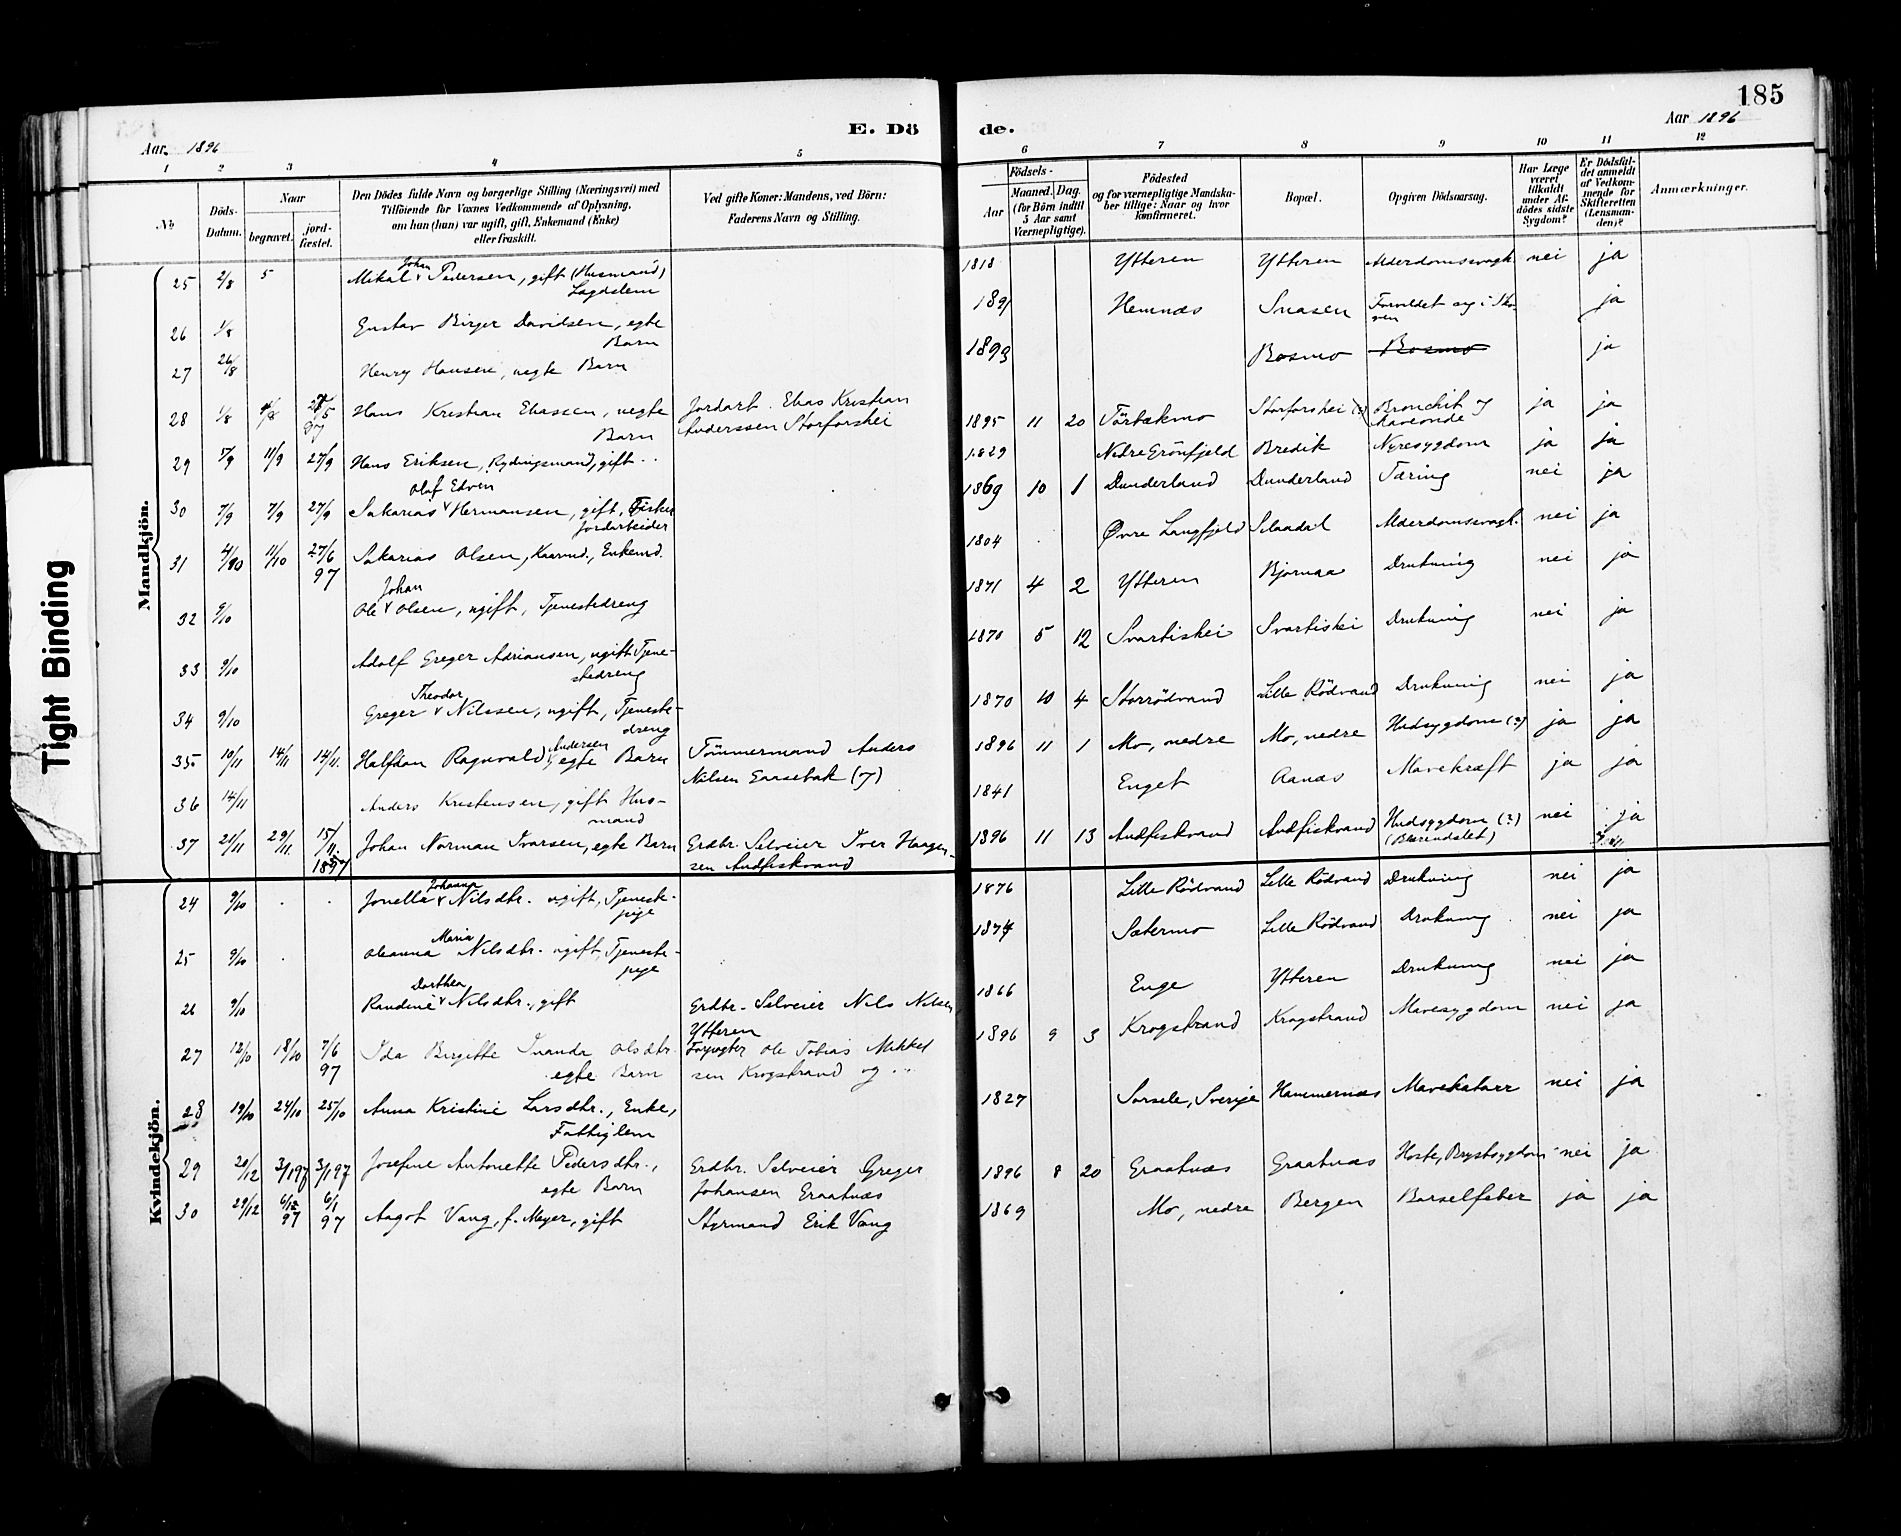 185
E. Dö de.
Aar 1896
Aar 1896
1 2 3 4 5 6 7 8 9 10 11 12
No
Döds-Datum.
Naar
begravet.
jord-fæstet.
Den Dödes fulde Navn og borgerlige Stilling (Næringsvei) med
Tilföiende for Voxnes Vedkommende af Oplysning,
om han (hun) var ugift, gift, Enkemand (Enke)
eller fraskilt.
Ved gifte Koner: Mandens, ved Börn:
Faderens Navn og Stilling.
Födsels-
Aar
Maaned.
Dag.
(for Börn indtil
5 Aar samt
Værnepligtige).
Födested
og for værnepligtige Mandska-
ber tillige: Naar og hvor
konfirmeret.
Bopæl.
Opgiven Dödsaarsag.
Har Læge
været
tilkaldt
under Af-
dödes sidste
Sygdom?
Er Dödsfal-
det anmeldt
af Vedkom-
mende for
Skifteretten
(Lensman-
den)?
Anmærkninger.
Mandkjön.
25 2/8 5 Mikal Johan Pedersen, gift (Husmand) Lægdslem 1818 Ytteren Ytteren Alderdomssvagh. nei ja
26 1/8 Gustav Birger Davidsen, egte Barn 1891 Hemnæs Snasen Forvildet sig i Skoven ja
27 26/8 Henry Hansen, uegte Barn 1893 Bosmo Bosmo ja
28 1/8 Hans Kristian Eliassen, uegte Barn Jordarb. Elias Kristian Anderssen Storforshei 1895 11 20 Törbekmo Storforshei (?) Bronchit og ja ja
29 5/9 11/9 27/9 Hans Eriksen, Rydningsmand, gift 1829 Nedre Grönfjeld Bredik Nyresygdom ja ja
30 7/9 7/9 27/9 Sakarias Olaf Edvin Hermansen, gift, Fisker Jordarbeider 1869 10 1 Dunderland Dunderland Tæring nei ja
31 4/10 11/10 27/6 97 Sakarias Olsen, Kaarmd., Enkemd. 1804 Övre Langfjeld Selaadal Alderdomssvagh. nei ja
32 9/10 Ole Johan Olsen, ugift, Tjenestedreng 1871 4 2 Ytteren Bjørnaa Drukning nei ja
33 9/10 Adolf Greger Adriansen, ugift Tjenestedreng 1870 5 12 Svartishei Svartishei Drukning nei ja
34 9/10 Greger Theodor Nilssen, ugift, Tjenestedreng 1870 10 4 Storrödvand Lille Rödvand Drukning nei ja
35 10/11 14/11 14/11. Halfdan Ragnvald Andersen, egte Barn Tömmermand Anders Nilsen Gaasebak (?) 1896 11 1 Mo, nedre Mo, nedre Hudsygdom (?) ja ja
36 14/11 Anders Kristensen, gift Husmand 1841 Enget Aanæs Mavekræft ja ja
37 21/11 29/11. 15/11. 1897 Johan Norman Ivarsen, egte Barn Erdbr. Selveier Iver Haagensen Andfiskvand 1896 11 13 Andfiskvand Andfiskvand Hudsygdom (?) nei ja
Kvindekjön.
24 9/10 Jonella Johanna Nilsdtr. ugift, Tjenestepige 1876 Lille Rödvand Lille Rödvand Drukning nei ja
25 9/10 Oleanna Maria Nilsdtr. ugift, Tjenestepige 1874 Sætermo Lille Rödvand Drukning nei ja
26 9/10 Randine Dorthea Nilsdtr., gift Erdbr. Selveier Nils Nilsen, Ytteren 1866 Enge Ytteren Drukning nei ja
27 12/10 18/10 7/6 97 Ida Birgitte Ivanda Olsdtr. egte Barn Ole Tobias Mikkelsen Krogstrand og 1896 9 3 Krogstrand Krogstrand Mavesygdom nei ja
28 19/10 24/10 25/10 Anna Kristine Larsdtr., Enke, Fattiglem 1827 Sorsele, Sverige Hammernæs Mavekatarr nei ja
29 20/12 3/1 97 3/1 97 Josefine Antonette Pedersdtr., egte Barn Erdbr. Selveier Greger Johansen Graatnæs 1896 8 20 Graatnæs Graatnæs Hoste, Brystsygdom nei ja
30 29/12 6/12 97 6/1 97 Aagot Vang, f. Meyer, gift Styrmand Erik Vang 1869 Mo, nedre Bergen Barselfeber ja ja
Tight Binding